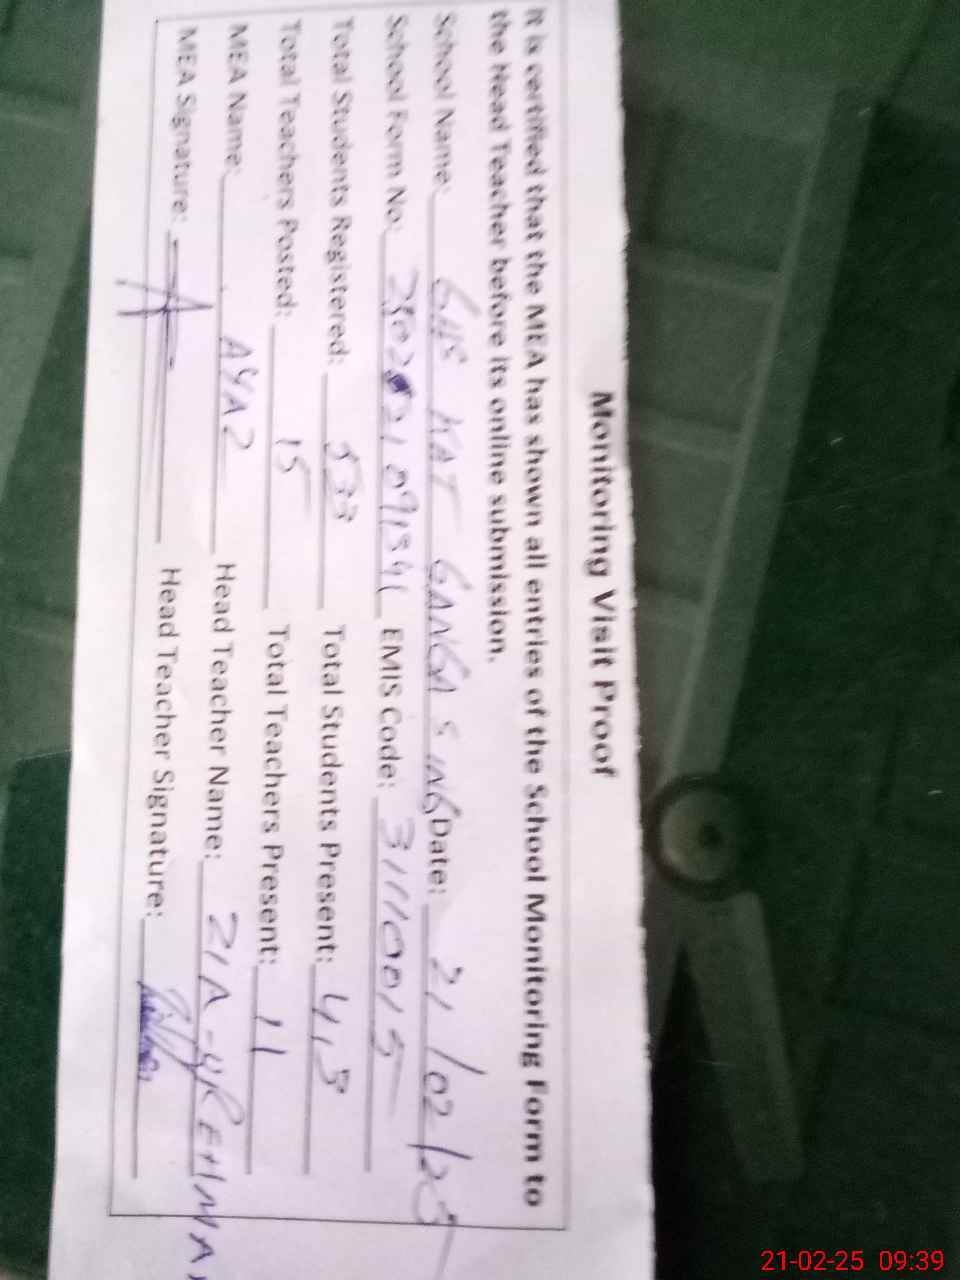 Monitoring Visit Proof
It is certified that the MEA has shown all entries of the School Monitoring Form to
the Head Teacher before its online submission.
School Name: GHS KAT GANGA SING Date: 21/02/25
School Form No: EMIS Code: 31110015
Total Students Registered: 533 Total Students Present: 413
Total Teachers Posted: 15 Total Teachers Present: 11
MEA Name: AYAZ Head Teacher Name: ZIA-UR-EHMA
MEA Signature: Head Teacher Signature:
21-02-25 09:39